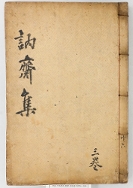 訥齋集
三卷